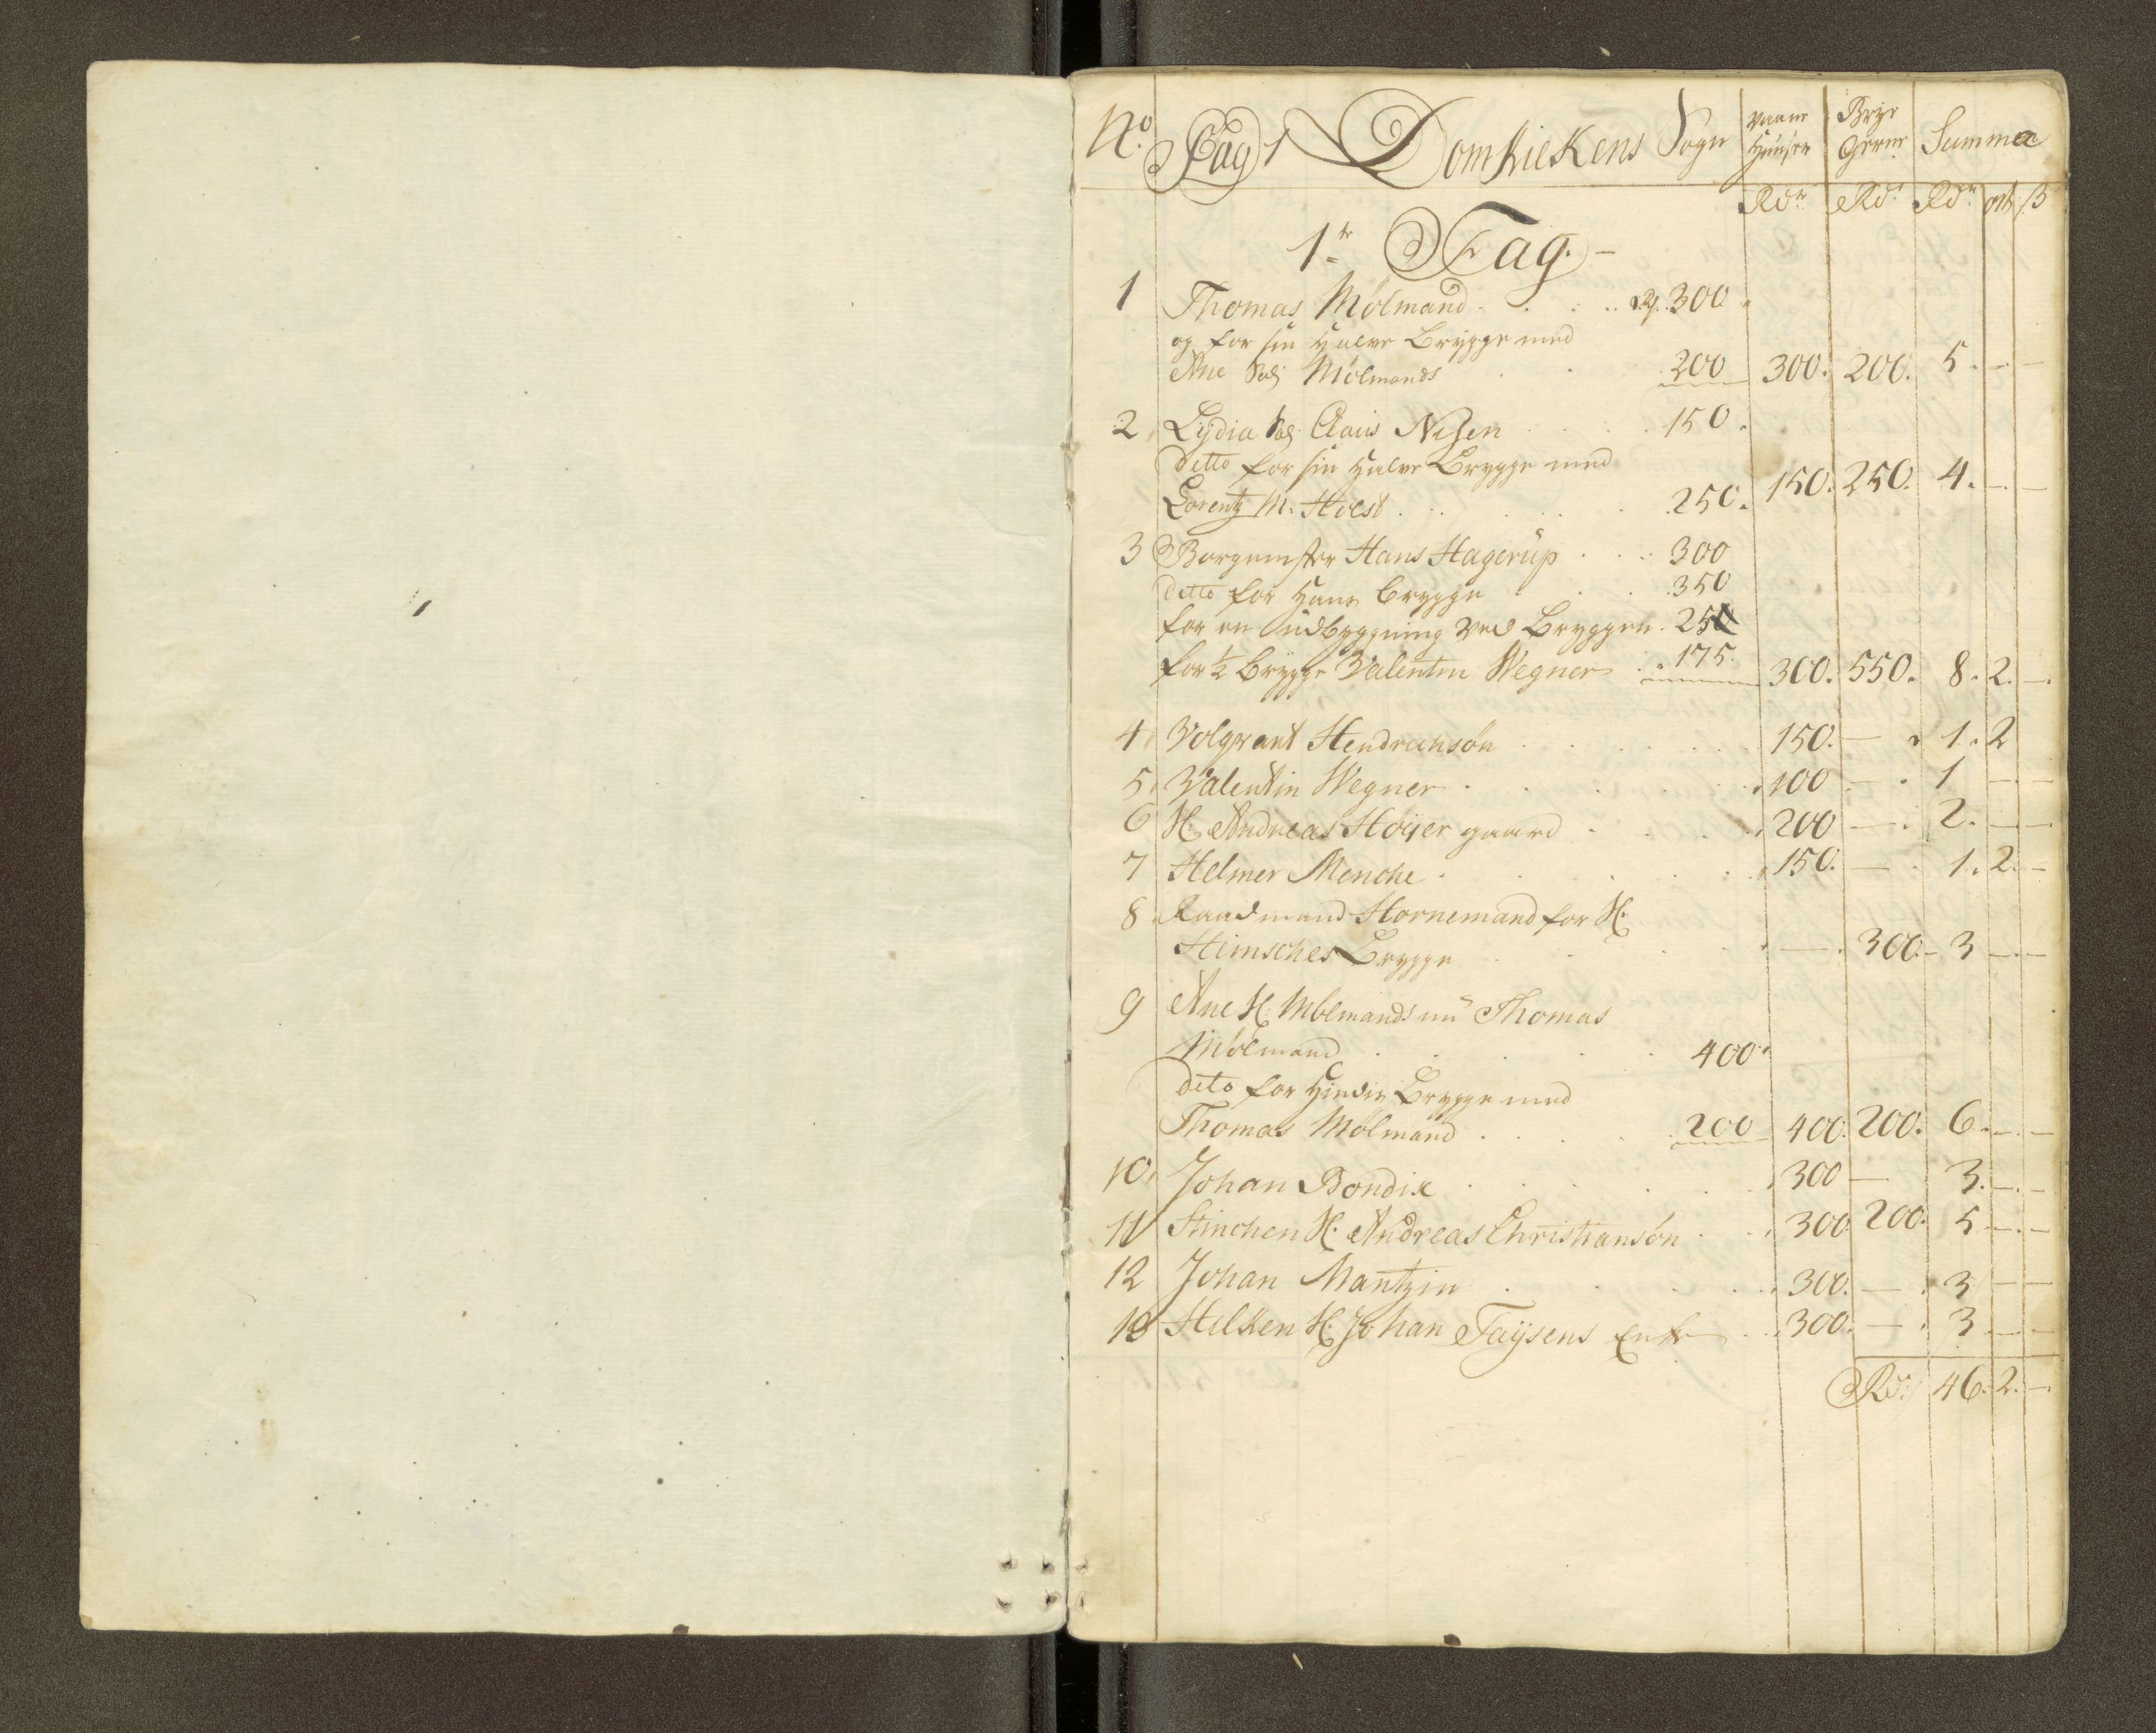 No. Pag 1 DomKirKens Sogn Vaane Huuser Brygerne Summa
Rdr Rdr Rdr ort ß
1te Tag.
1 Thomas Mølmand Rd. 300
og for sin halve Brygge med
Ane Sal. Mølmands 200 300. 200. 5. - -
2 Lydia Sal. Claus Nisen 150.
ditto for sin halve Brygge med
Lorentz M. Holst 250. 150. 250. 4. - -
3 Borgemester Hans Hagerup 300
ditto for hans brygge 350
for en udbygning ved Bryggen 25
for ½ brygge Valentin Wegner 175. 300. 550. 8. 2. -
4 Volqvart Hendrichsøn 150. - 1. 2
5 Valentin Wegner 100 - 1 - -
6 H. Andreas Höÿer gaard 200 - 2. - -
7 Helmer Menche 150. - 1. 2. -
8 Raadmand Hornemand for H.
Heimsches Brygge - 300. 3 - -
9 Ane H. Mølmands nu Thomas
Mølmand 400
dito for hindis Brygge med
Thomas Mølmand 200 400. 200. 6. - -
10 Johan Bondix 300 - 3. - -
11 Stinchen H. Andreas Christiansøn 300 200. 5 - -
12 Johan Mantzin 300. - 3 - -
13 Hilken H. Johan Taÿsens Enke 300. - 3 - -
Rdr 46. 2. -